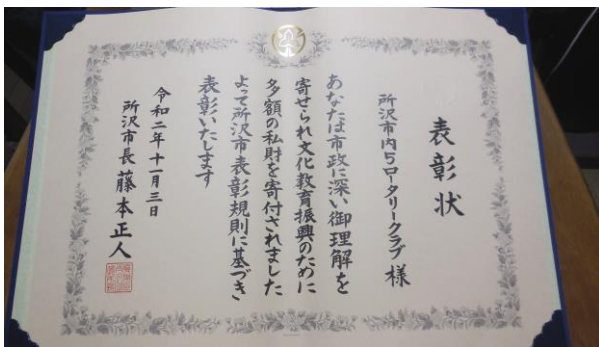 表彰状
所沢市内5ロータリークラブ 様
あなたは市政に深い御理解を
寄せられ文化教育振興のために
多額の私財を寄付されました
よって所沢市表彰規則に基づき
表彰いたします
令和二年十一月三日
所沢市長 藤本正人